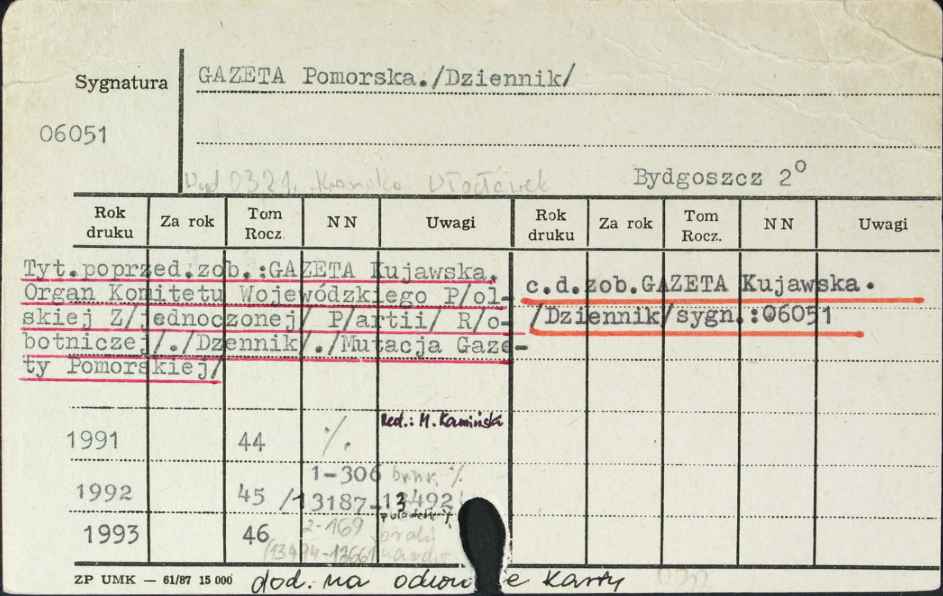 GAZETA Pomorska./Dziennik/
Sygnatura
06051
0321. Włocławek
Bydgoszcz 2°
Rok druku Za rok Tom Rocz. NN Uwagi Rok druku Za rok Tom Rocz. NN Uwagi
Tyt.poprzed.zob.:GAZETA Kujawska.
Organ Komitetu Wojewódzkiego P/ol-
skiej Z/jednoczonej/ P/artii/ R/o-
botniczej/./Dzennik/./Mutacja Gaze-
ty Pomorskiej/
c.d.zob.GAZETA Kujawska.
/Dziennik/sygn.:06051
Red.: M. Kamiński
1991 44 %
1-306
1992 45 /13187-13492
1993 46 2-169
ZP UMK — 61/87 15 000
dod. na karty